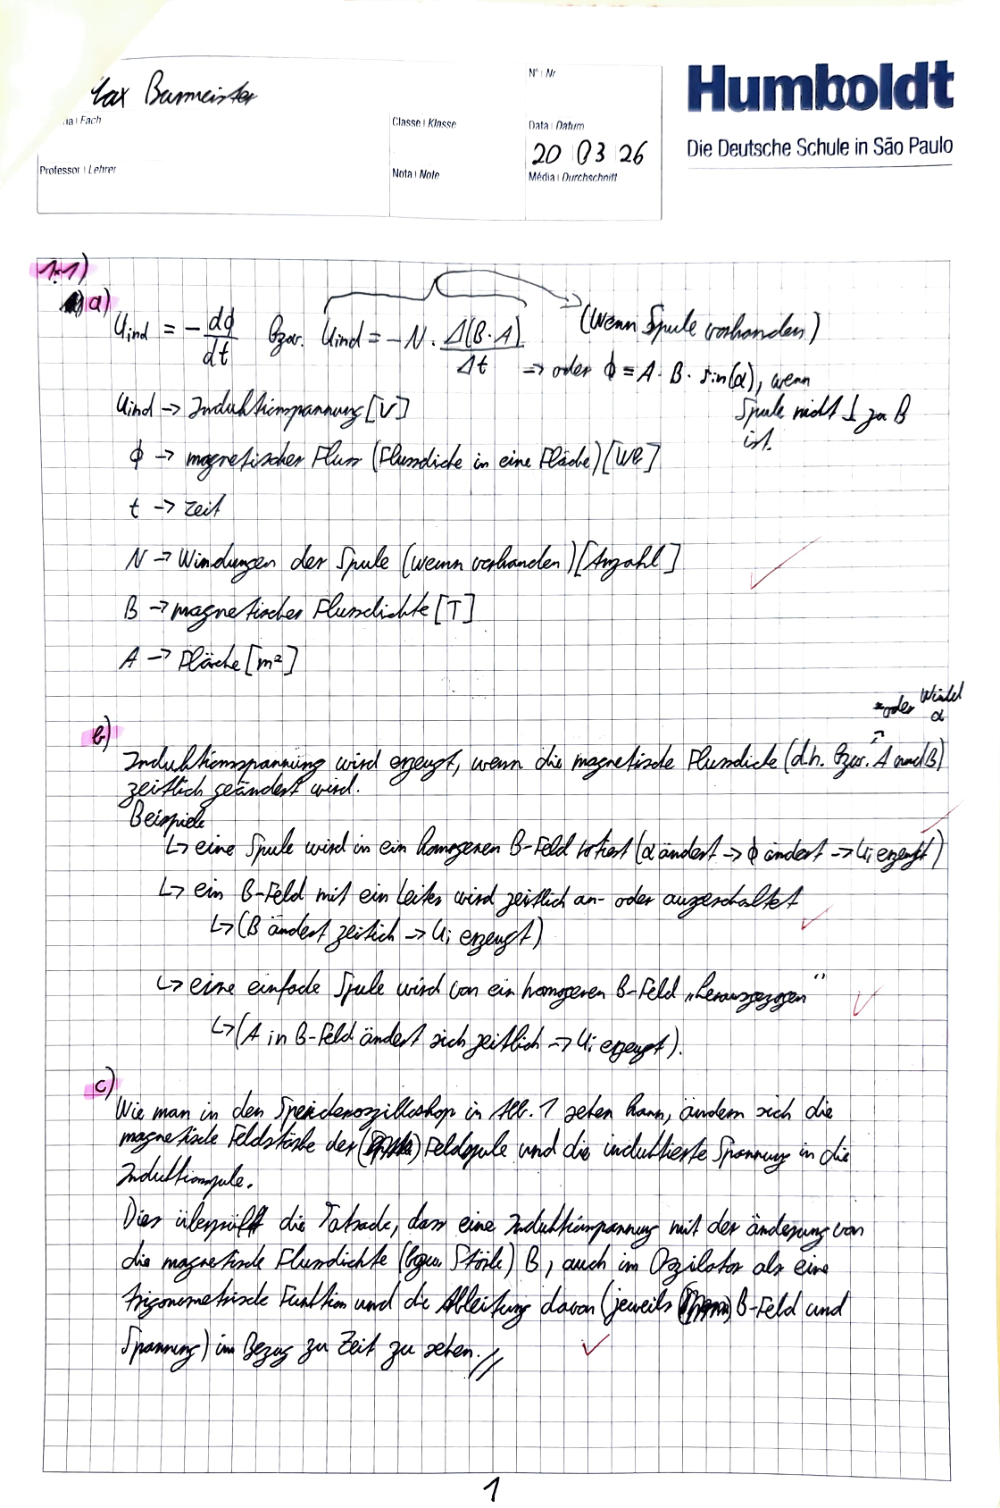 Max Burmeister
N° | Nr
Humboldt
Die Deutsche Schule in São Paulo
ia | Fach
Classe | Klasse
Data | Datum
20 03 26
Professor | Lehrer
Nota | Note
Média | Durchschnitt
1.1)
a)
Uind = - dϕ/dt bzw. Uind = -N · Δ(B·A)/Δt (Wenn Spule vorhanden)
=> oder ϕ = A · B · sin(α), wenn
Spule nicht ⊥ zu B
ist.
Uind -> Induktionspannung [V]
ϕ -> magnetischer Fluss (Flussdicke in eine Fläche) [Wb]
t -> Zeit
N -> Windungen der Spule (wenn vorhanden) [Anzahl]
B -> magnetischer Flussdichte [T]
A -> Fläche [m²]
oder Winkel
α
b)
Induktionsspannung wird erzeugt, wenn die magnetische Flussdicke (d.h. bzw. A und B)
zeitlich geändert wird.
Beispiele
↳ eine Spule wird in ein homogenen B-Feld rotiert (α ändert -> ϕ ändert -> Ui erzeugt)
↳ ein B-Feld mit ein Leiter wird zeitlich an- oder ausgeschaltet
↳ (B ändert zeitich -> Ui erzeugt)
↳ eine einfache Spule wird von ein homogenen B-Feld „herausgezogen“
↳ (A in B-Feld ändert sich zeitlich -> Ui erzeugt).
c)
Wie man in den Speicheroszilloskop in Abb. 1 sehen kann, ändern sich die
magnetische Feldstärke der Feldspule und die induktierte Spannung in die
Induktionspule.
Dies überprüft die Tatsache, dass eine Induktionspannung mit der änderung von
die magnetische Flussdichte (bzw. Stärke) B, auch im Oszilator als eine
trigonometrische Funktion und die Ableitung davon (jeweils B-Feld und
Spannung) im Bezug zu Zeit zu sehen.//
1